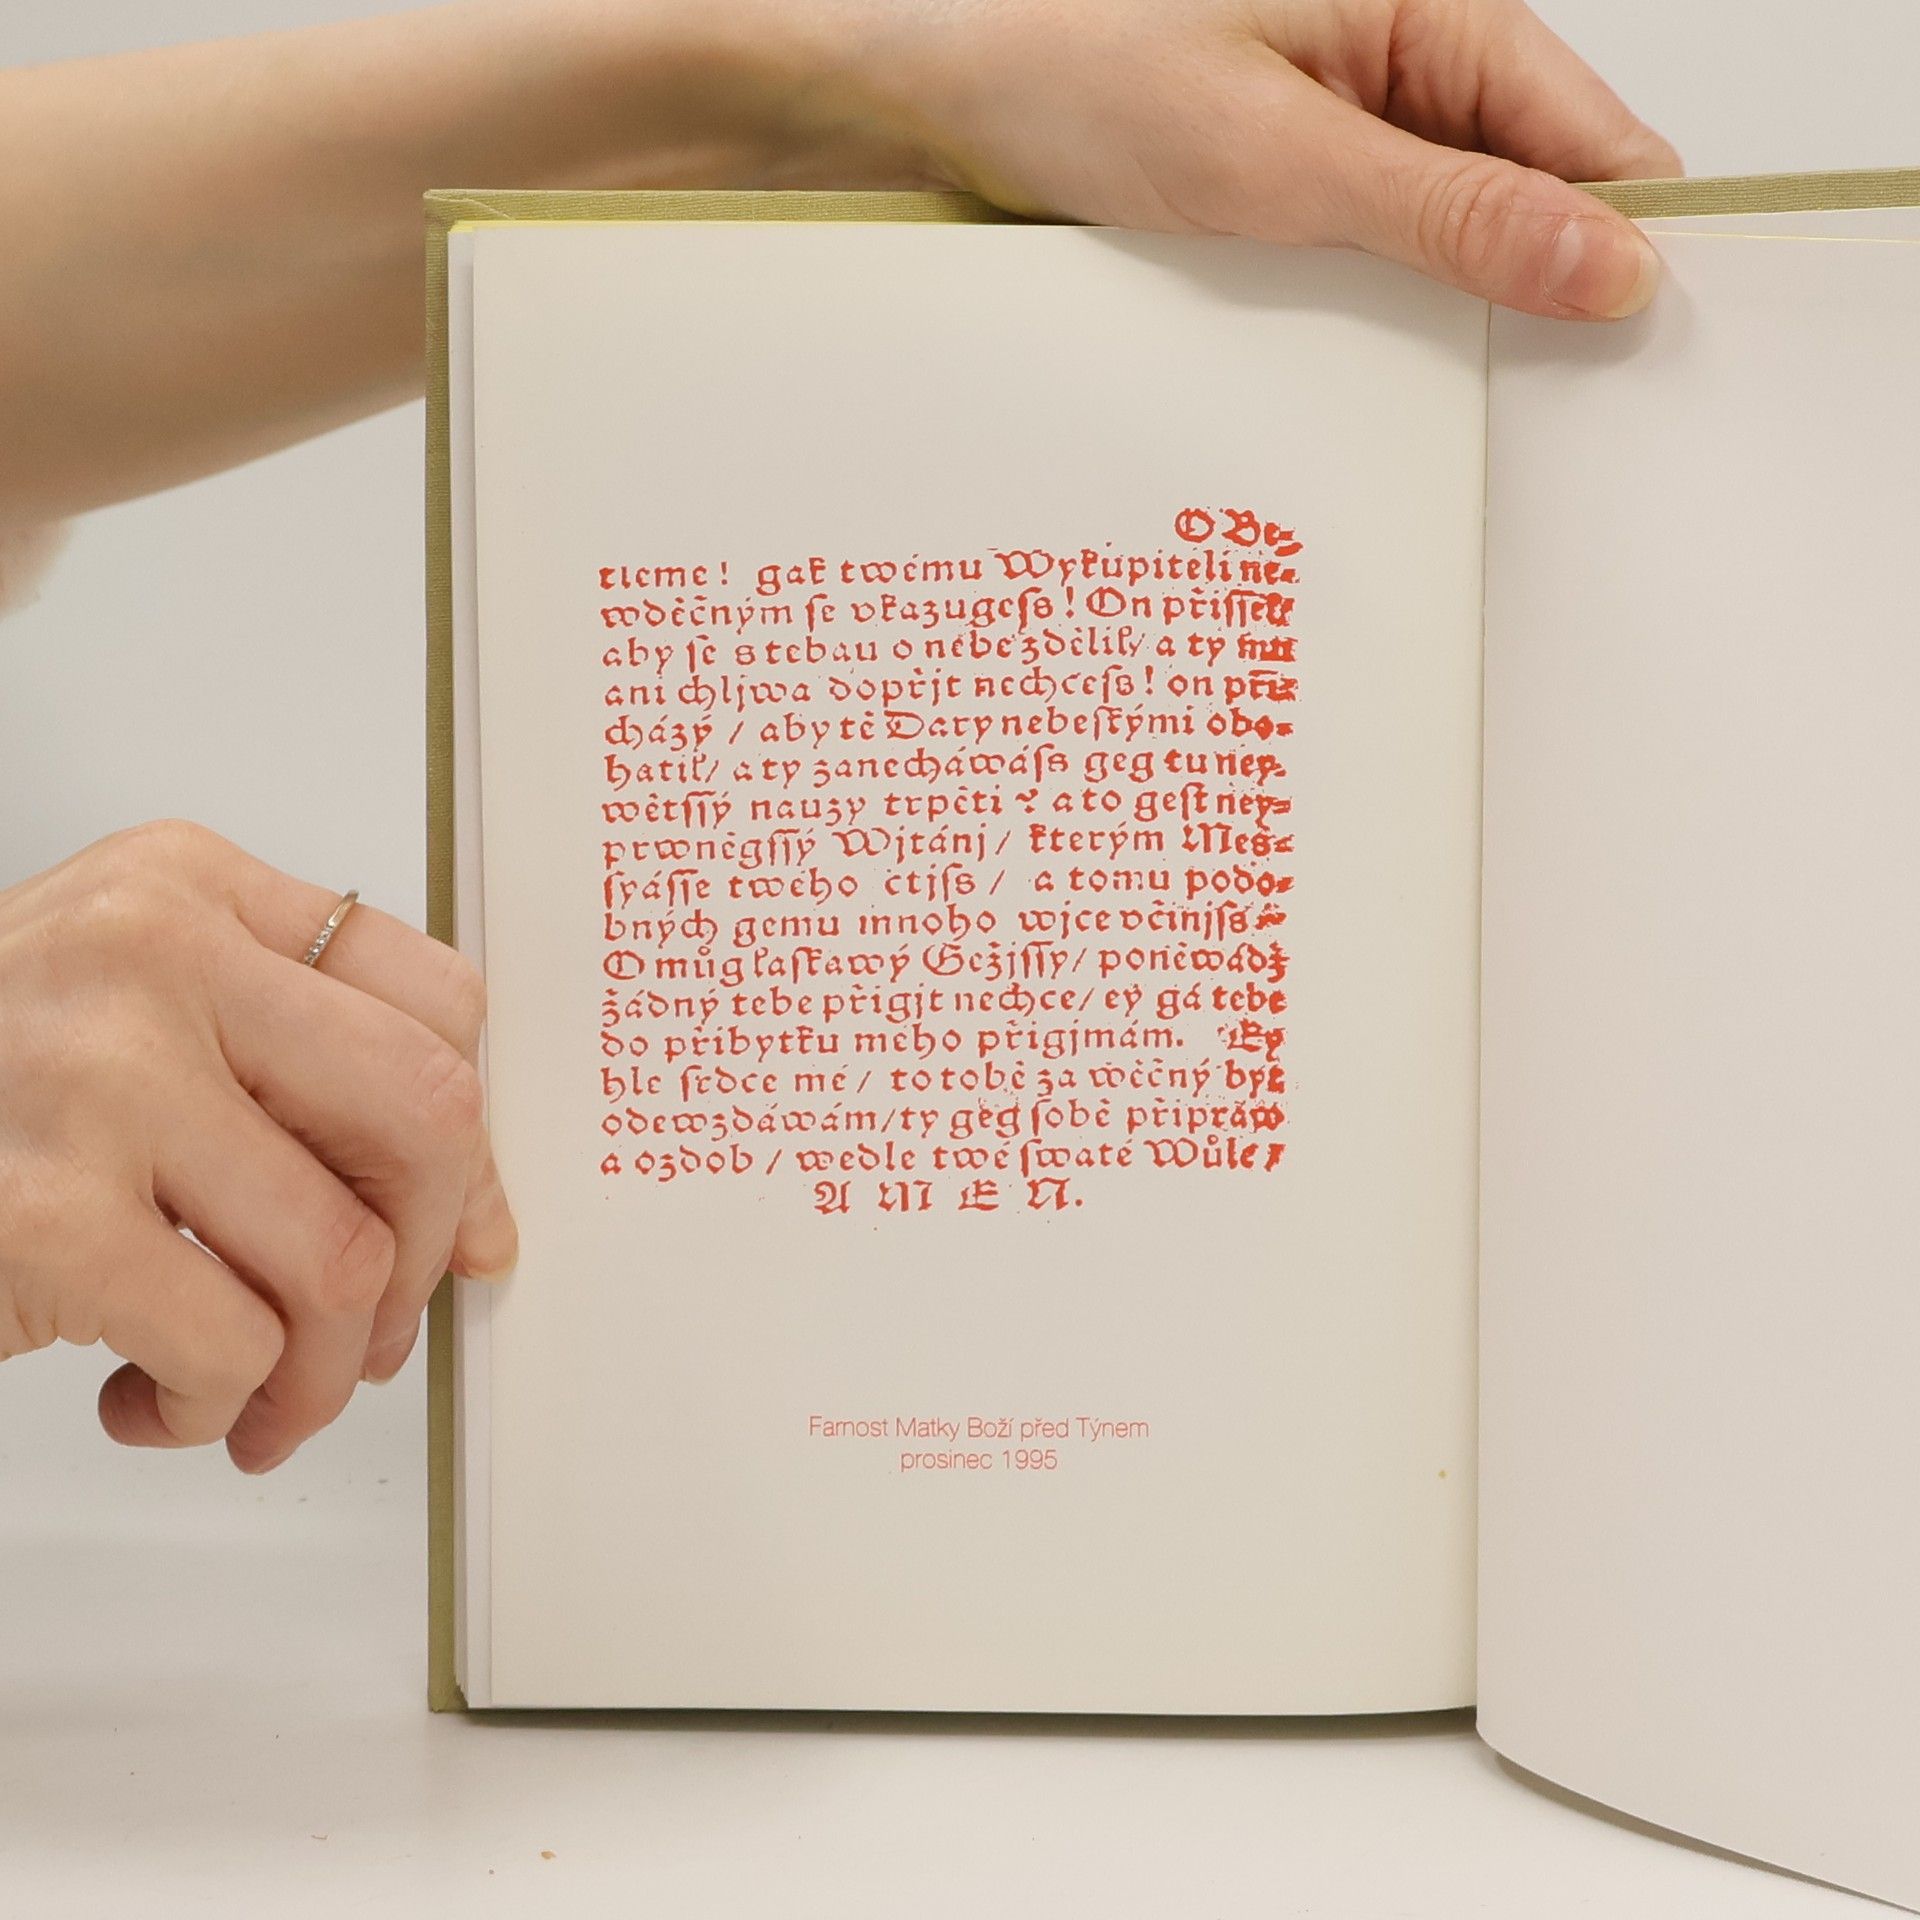 O Be-
tleme! gak twému Wykupiteli ne-
wděčným se vkazugeſs! On přiſſel/
aby ſe s tebau o nebe zdělil/ a ty mu
ani chljwa dopřjt nechceſs! on při-
cházý / aby tě Dary nebeſkými obo-
hatil/ a ty zanecháwáſs geg tu ney-
wětſſý nauzy trpěti? a to geſt ney-
prwněgſſý Wjtánj/ kterým Meſ-
ſyáſſe twého ctjſs / a tomu podo-
bných gemu mnoho wjce včinjſs
O můg laſkawý Gežjſſy/ poněwádž
žádný tebe přigjt nechce/ ey gá tebe
do přibytku mého přigjmám. Ey
hle ſrdce mé/ to tobě za wěčný byt
odewzdáwám/ ty geg ſobě připraw
a ozdob / wedle twé ſwaté Wůle /
A M E N.
Farnost Matky Boží před Týnem
prosinec 1995